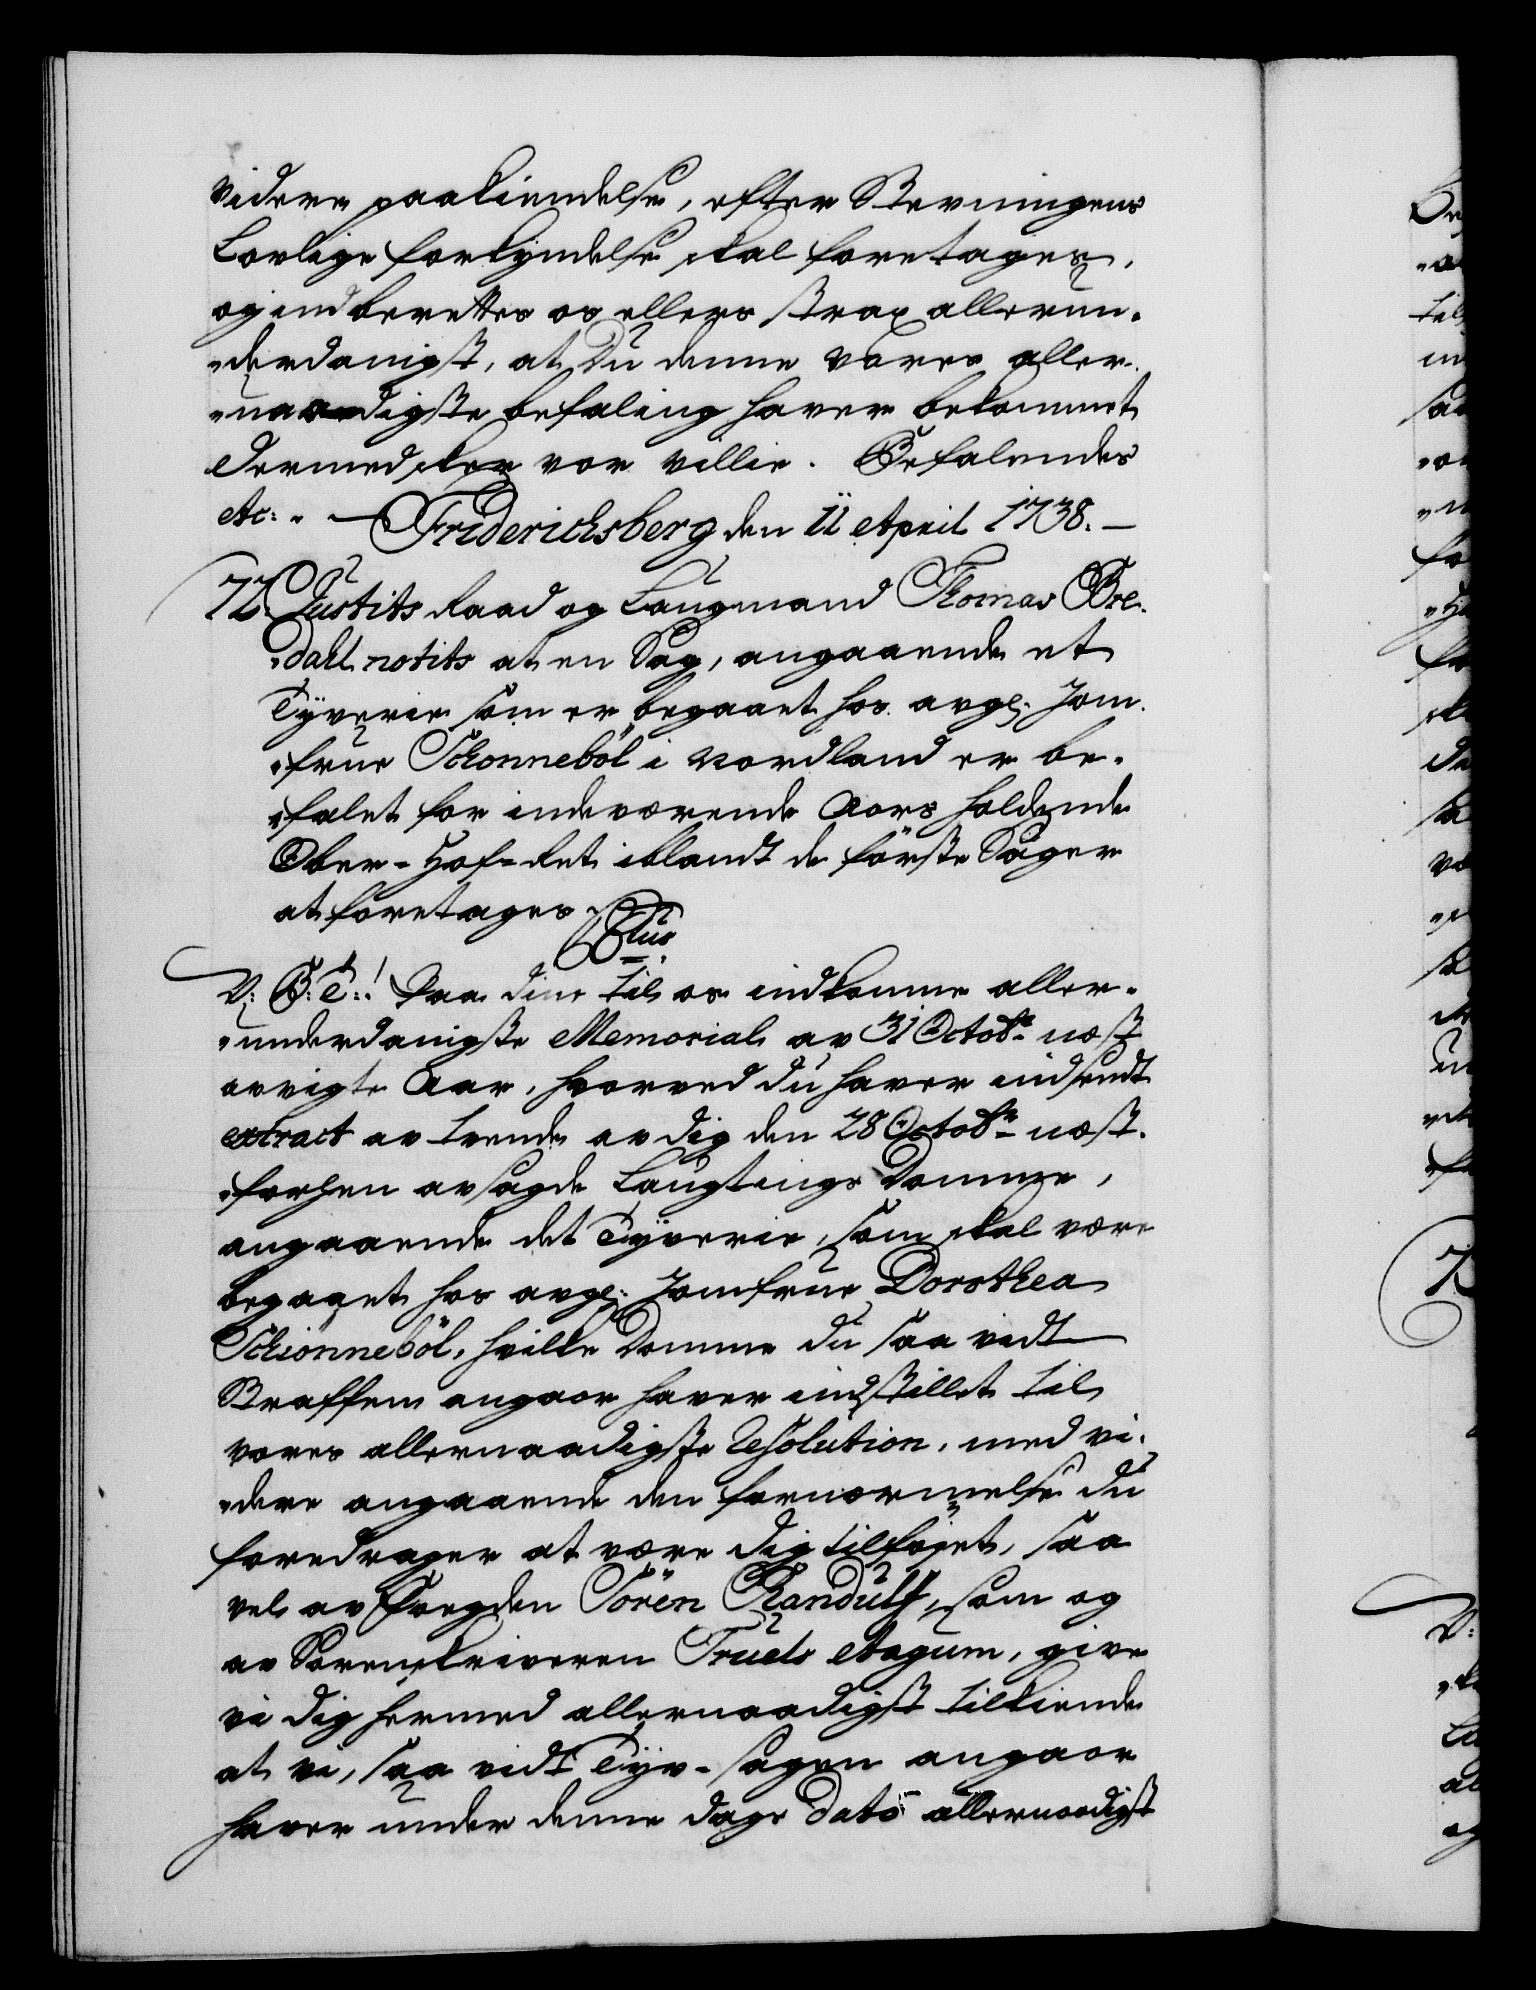 videre paakiendelse, efter Stevningens
Lovlige forkyndelse skal foretages,
og indberettes os ellers strax allerun-
„derdanigst, at Du denne vores aller-
„naadigste befaling haver bekommet,
dermed skeer vor villie. Befalendes
etc: „ — Friderichsberg den 11 April 1738. —
72. Justits Raad og Laugmand Thomas Bre-
„dahl notits at en Sag, angaaende et
Tyverie som er begaaet hos avgl: Jom-
„frue Schonneböl i Nordland er be-
„falet for indeværende Aars holdende
Ober-Hof-Ret iblandt de förste Sager
at foretages.
V: G: T:! Paa dine til os indkomne aller-
„underdanigste Memorial av 31 Octobr næst
avvigte Aar, hvorved du haver indsendt
extract av trende av dig den 28 Octobr næst-
„forhen avsagde Laugtings Domme,
angaaende det Tyverie, som skal være
begaaet hos avgl: Jomfrue Dorothea
Schiönneböl, hvilke Domme du saa vidt
Straffen angaaer haver indstillet til
vores allernaadigste Resolution, med vi-
„dere angaaende den fornærmelse du
foredrager at være dig tilföjet, saa
vel av Fogden Sören Randulf, som og
av Sorenskriveren Truels Aagum, give
vi dig hermed allernaadigst tilkiende
at vi, saa vidt Tyv-sagen angaaer
haver under denne dags dato allernaadigst